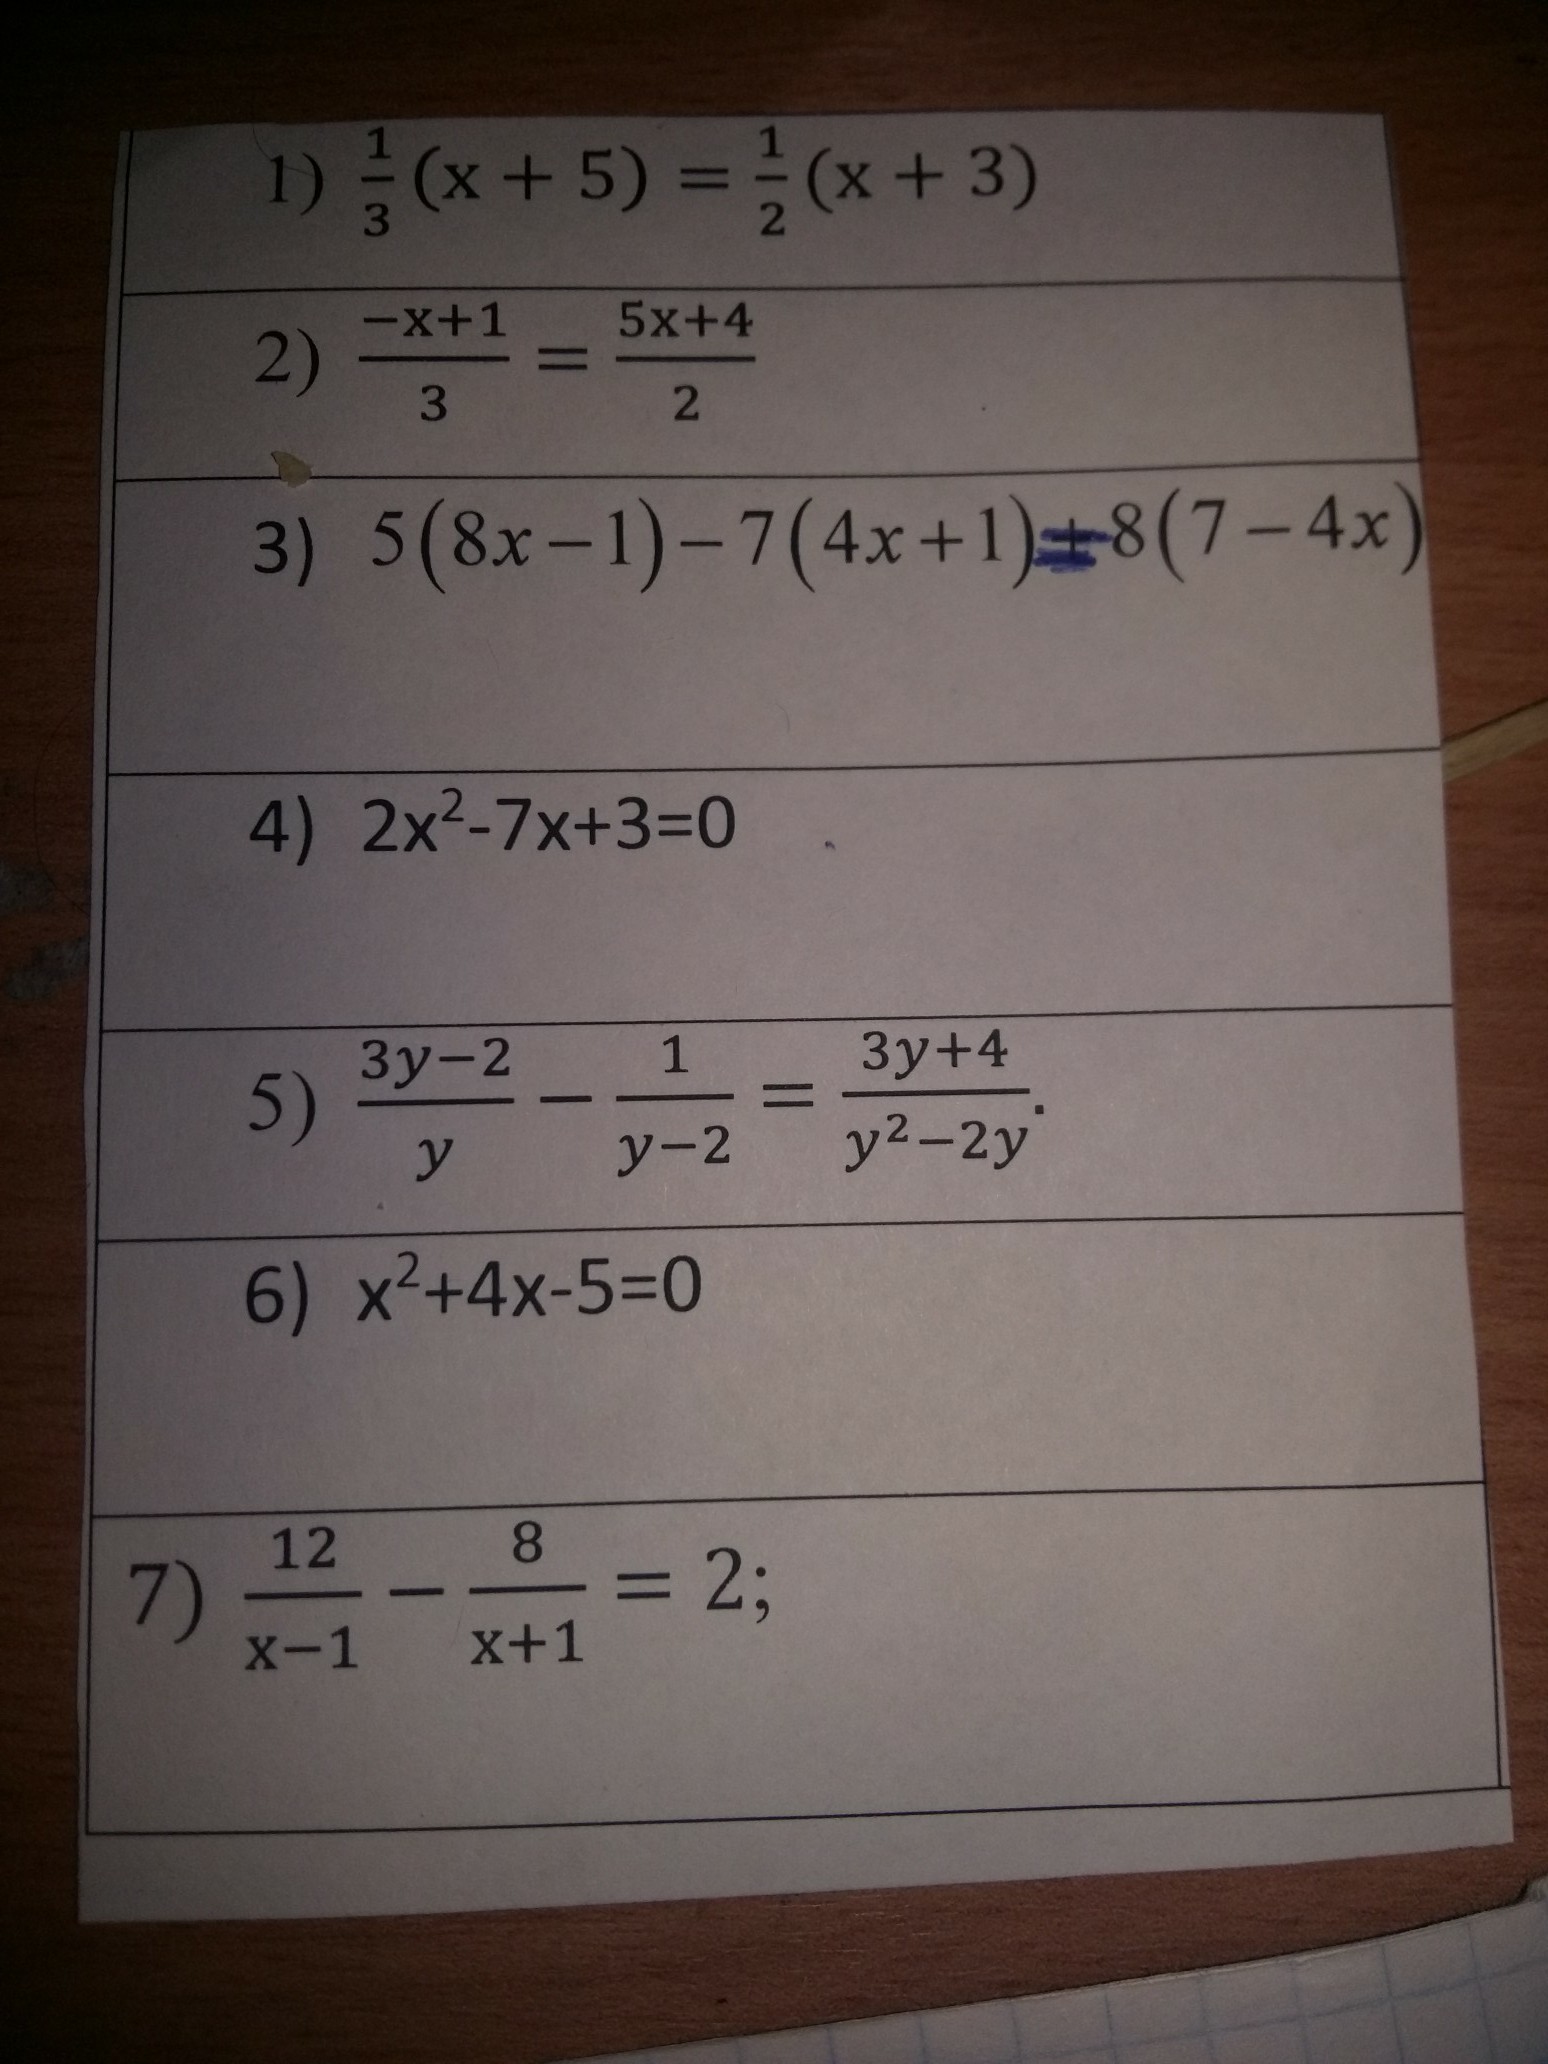 1) 1/3 (x + 5) = 1/2 (x + 3)
2) (−x+1)/3 = (5x+4)/2
3) 5(8x − 1) − 7(4x + 1) = 8(7 − 4x)
4) 2x²-7x+3=0
5) (3y−2)/y − 1/(y−2) = (3y+4)/(y²−2y).
6) x²+4x-5=0
7) 12/(x−1) − 8/(x+1) = 2;